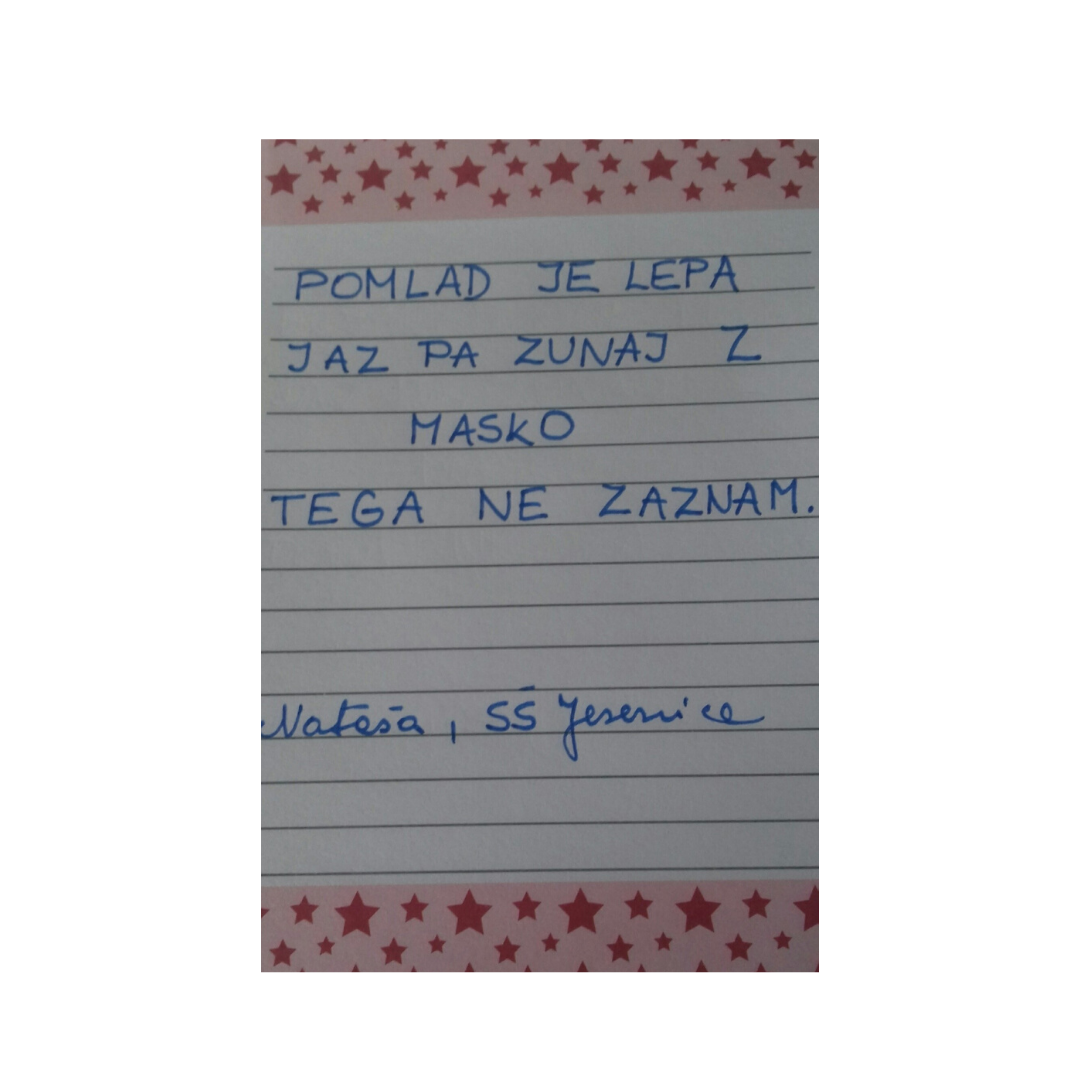 POMLAD JE LEPA
JAZ PA ZUNAJ Z
MASKO
TEGA NE ZAZNAM.
Nataša, SŠ Jesenice